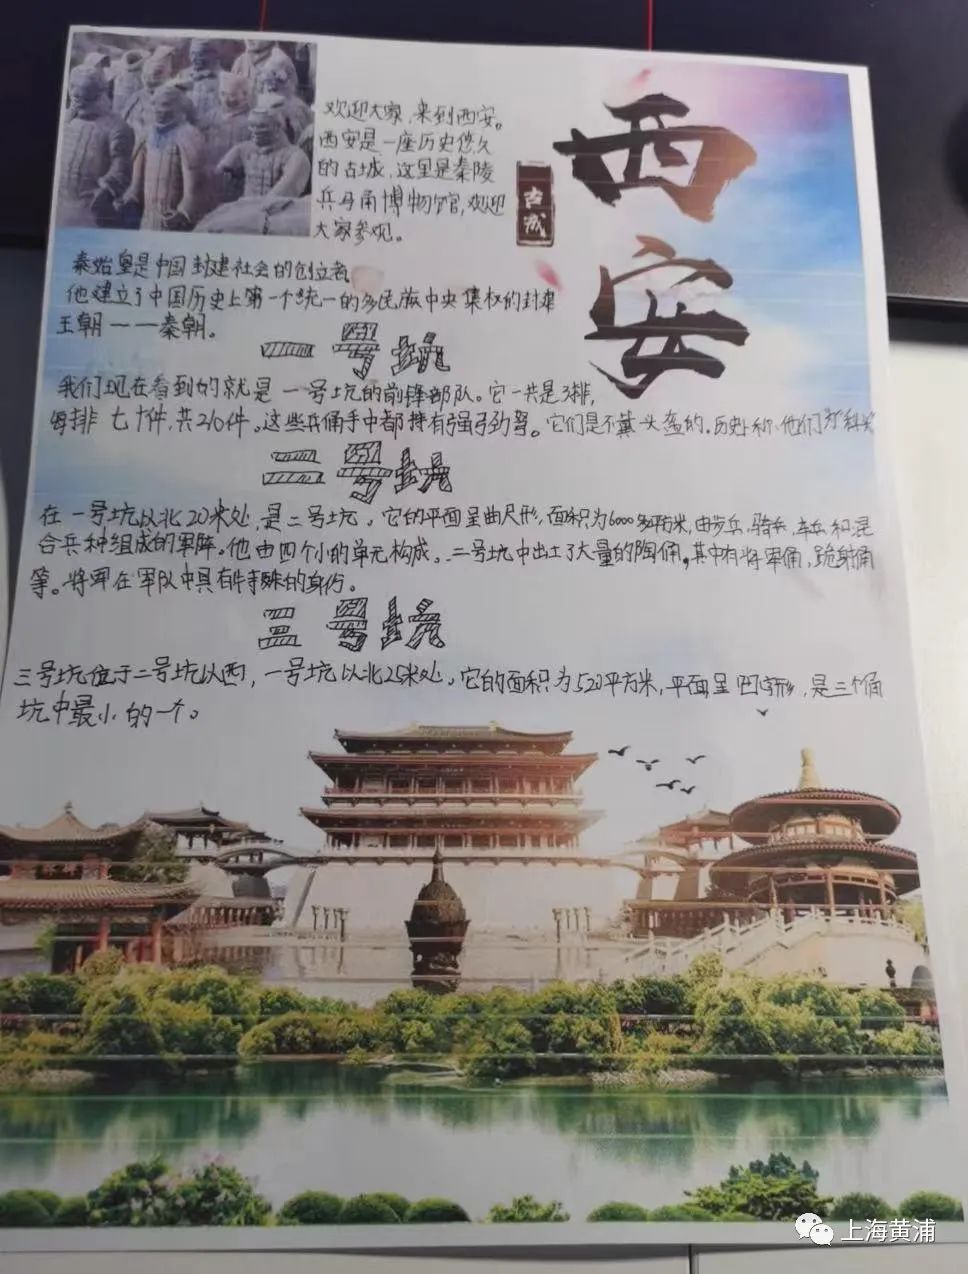 西安
古城
欢迎大家,来到西安。
西安是一座历史悠久
的古城,这里是秦陵
兵马甬博物馆,欢迎
大家参观。
秦始皇是中国封建社会的创立者,
他建立了中国历史上第一个统一的多民族中央集权的封建
王朝———秦朝。
一号坑
我们现在看到的就是一号坑的前锋部队。它一共是3排,
每排七十件,共210件。这些兵俑手中都持有强弓劲弩。它们是不戴头盔的,历史称他们为科头
二号坑
在一号坑以北20米处,是二号坑。它的平面呈曲尺形,面积为6000多平方米,由步兵,骑兵,车兵和混
合兵种组成的军阵。他由四个小的单元构成。二号坑中出土了大量的陶俑,其中有将军俑,跪射俑
等。将军在军队中具有特殊的身份。
三号坑
三号坑位于二号坑以西,一号坑以北25米处。它的面积为520平方米,平面呈凹字形,是三个俑
坑中最小的一个。
上海黄浦